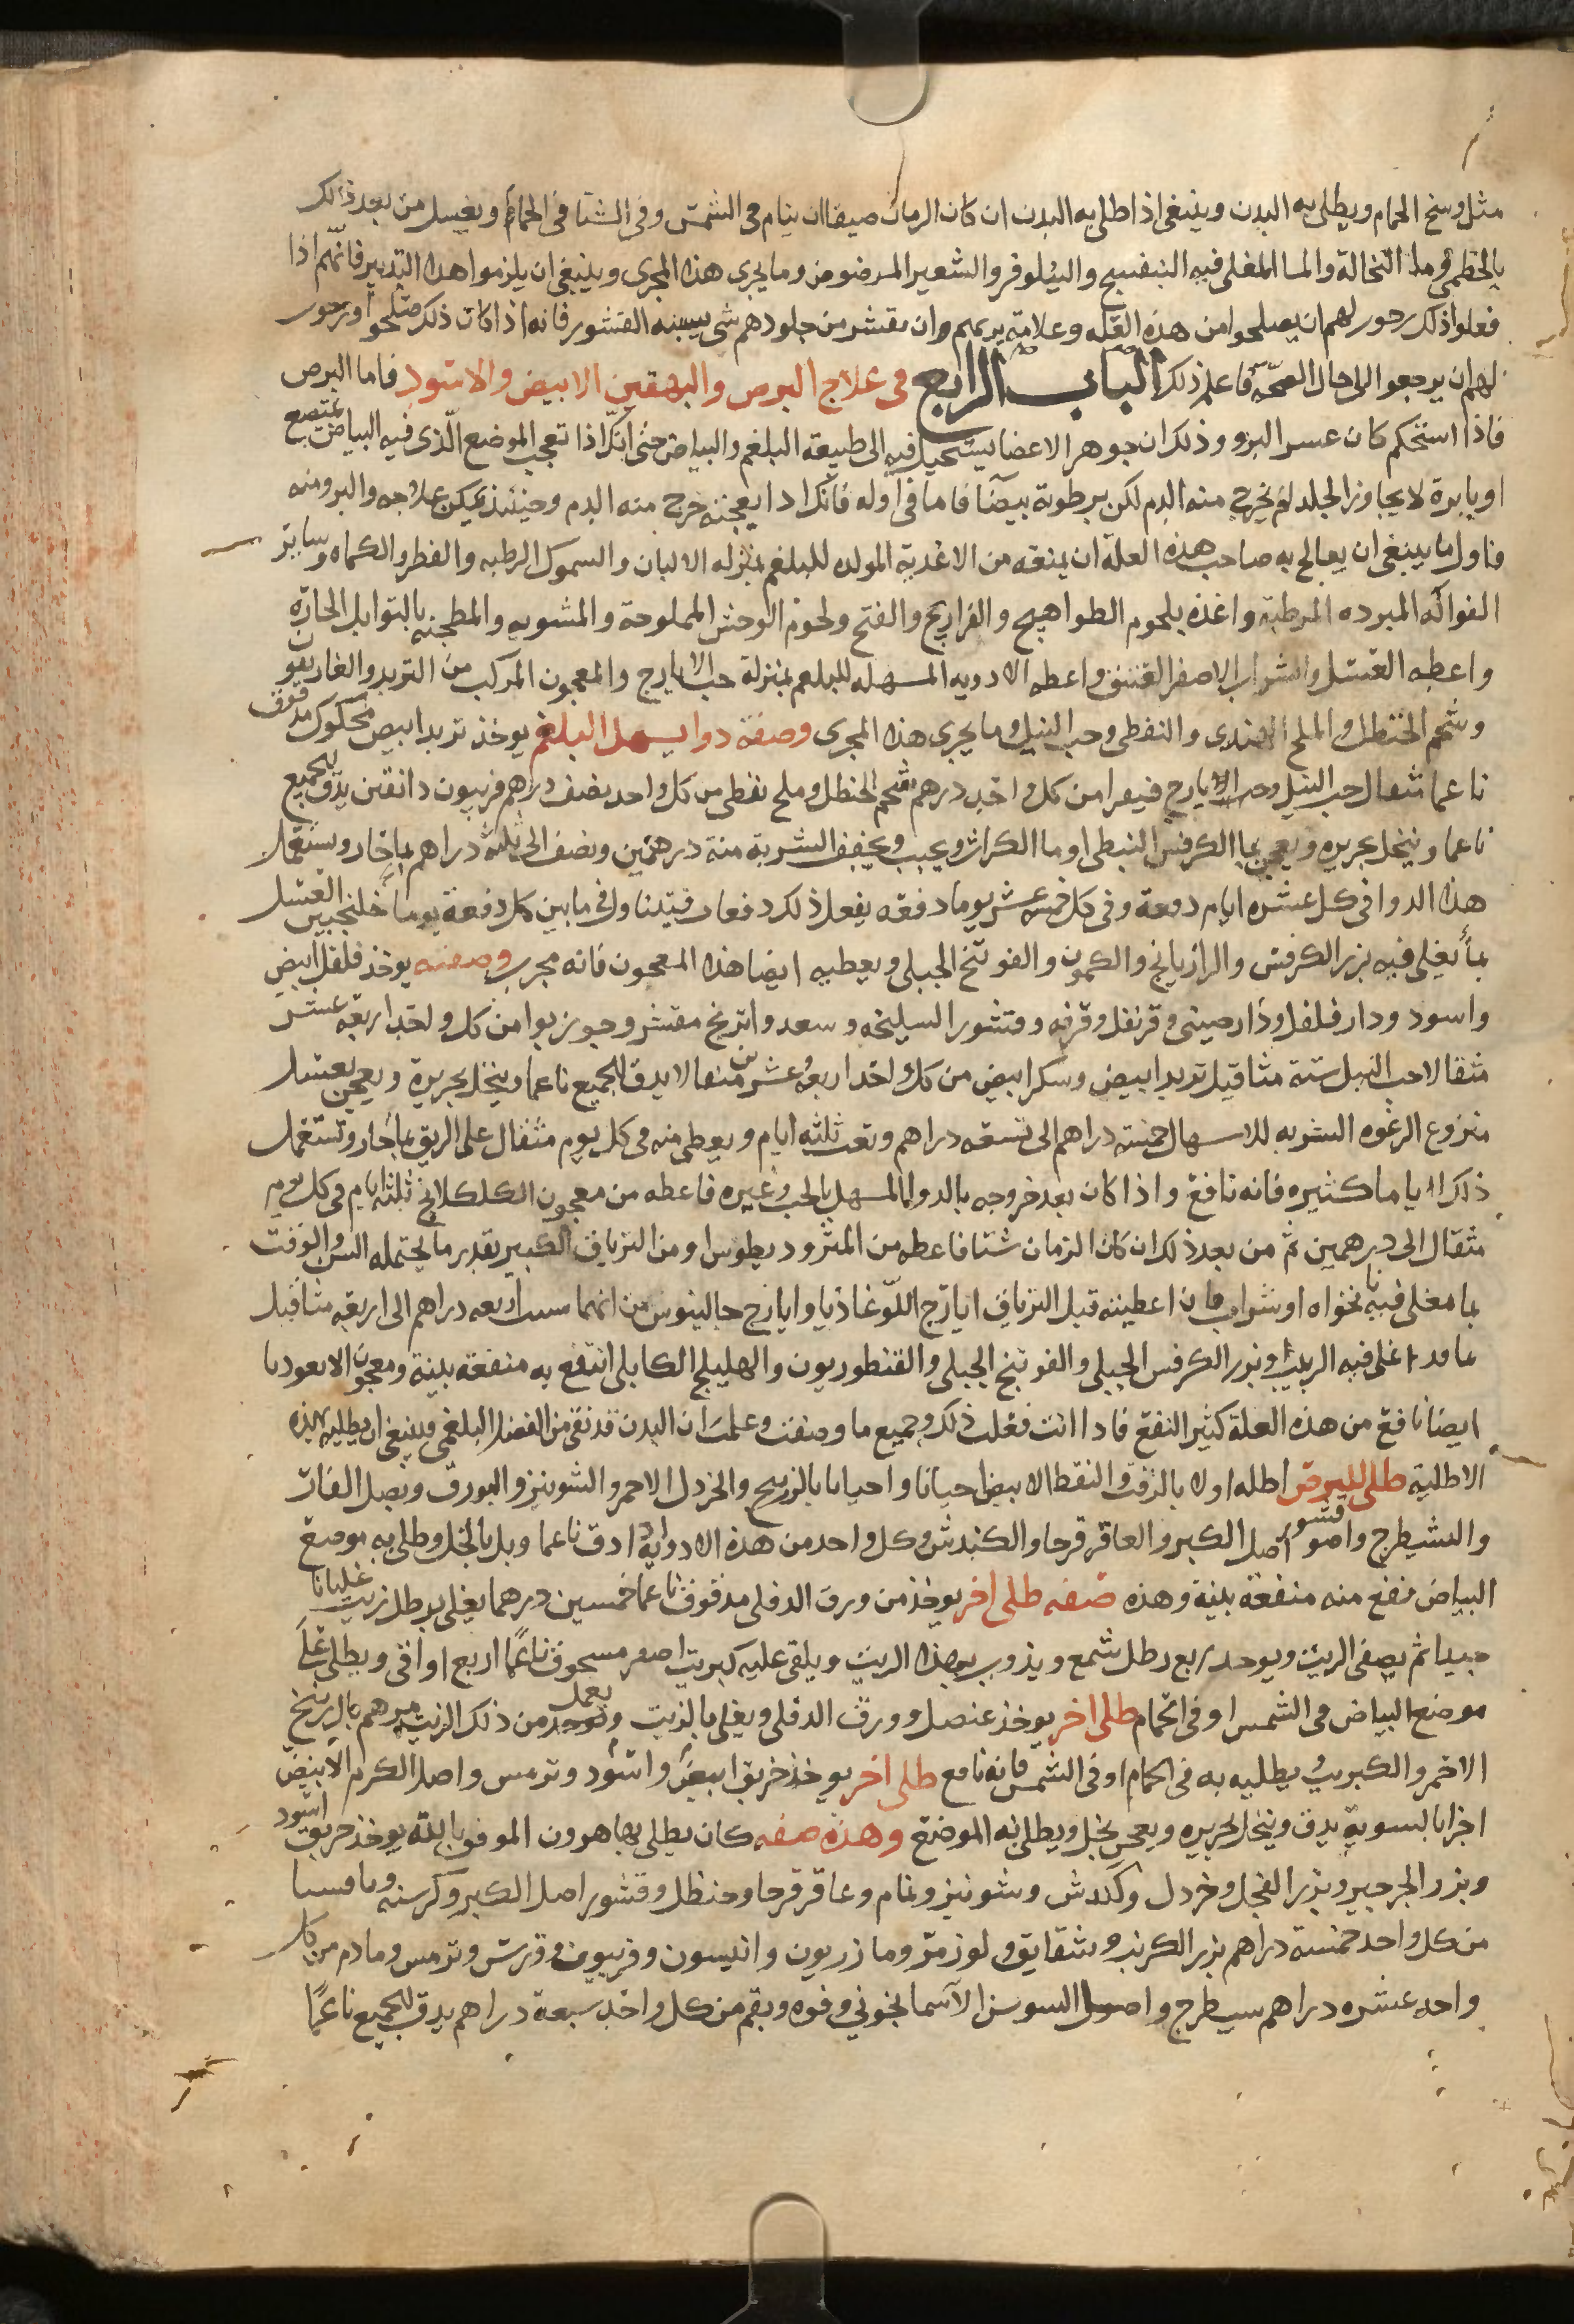 مثل وسخ الحمام ويطلى به البدن وينبغى اذا طلى به البدن ان كان الزمان صيفا ان ينام فى الشمس وفى الشتا فى الحمام ويغسل من بعد ذلك
بالخطمى وما النخالة والما المغلى فيه البنفسج والنيلوفر والشعير المرضوض وما يجرى هذا المجرى وينبغى ان يلزموا هذا التدبير فانهم اذا
فعلوا ذلك رجوا لهم ان يصلحوا من هذه العله وعلامة بريهم وان يقشر من جلودهم شى يشبه القشور فانه اذا كان ذلك صلحوا ويرجون
لهم ان يرجعوا الى حال الصحة فاعلم ذلك الباب الرابع فى علاج البرص والبهقين الابيض والاسود فاما البرص
فاذا استحكم كان عسر البرو وذلك ان جوهر الاعضا يستحيل فيه الى طبيعة البلغم والبياض حتى انك اذا تعجب الموضع الذى فيه البياض بمبضع
او بابرة لا يجاوز الجلد لم يخرج منه الدم لكن برطوبة بيضا فاما فى اوله فانك اذا بعجته خرج منه الدم وحينئذ يمكن علاجه والبرو منه
فاول ما ينبغى ان يعالج به صاحب هذه العلة ان يمنعه من الاغذية المولده للبلغم بمنزله الالبان والسموك الرطبه والفطر والكماه وساير
الفواكه المبرده المرطبه واغذه بلحوم الطواهيج والفراريج والفتح ولحوم الوحش المملوحة والمشويه والمطجنه بالتوابل الحارة
واعطه العسل والشراب الاصفر العتيق واعطه الادويه المسهله للبلغم بمنزلة حب الايارج والمعجون المركب من التربد والغاريقون
وشحم الحنظل والملح الهندى والنفطى وحب النيل وما يجرى هذا المجرى وصفة دوا يسهل البلغم يوخذ تربد ابيض محكوك مدقوق
ناعما مثقال حب النيل وحب الايارج فيقرا من كل واحد درهم شحم الحنظل وملح نفطى من كل واحد نصف درهم فربيون دانقين يدق الجميع
ناعما وينخل بحريره ويعجن بما الكرفس النبطى او ما الكراث ويحبب ويجفف الشربة منه درهمين ونصف الى ثلثة دراهم بما حار ويستعمل
هذا الدوا فى كل عشره ايام دفعة وفى كل خمسه عشر يوما دفعه يفعل ذلك دفعات فيتناول فى ما بين كل دفعة يوما خلنجبين العسل
بما يغلى فيه بزر الكرفس والرازيانج والكمون والفوتنج الجبلى ويعطيه ايضا هذا المعجون فانه مجرب وصفته يوخذ فلفل ابيض
واسود ودارفلفل ودارصينى وقرنفل وقرفه وقشور السليخه وسعد وابرنج مقشر وجوزبوا من كل واحد اربعة عشر
مثقالا حب النيل ستة مثاقيل تربد ابيض وسكر ابيض من كل واحد اربعه وعشرين مثقالا يدق الجميع ناعما وينخل بحريرة ويعجن بعسل
منزوع الرغوه الشربه للاسهال خمسه دراهم الى تسعه دراهم وتعت ثلثه ايام ويعطى منه فى كل يوم مثقال على الريق بما حار وتستعمل
ذلك اياما كثيره فانه نافع واذا كان بعد خروجه بالدوا المسهل بالحب وغيره فاعطه من معجون الكلكلانج ثلثة ايام فى كل يوم
مثقال الى درهمين ثم من بعد ذلك ان كان الزمان شتا فاعطه من المثروديطوس او من الترياق الكبير بقدر ما يحتمله السن والوقت
بما مغلى فيه نانخواه او شراب فان اعطيته قبل الترياق ايارج اللوغاذيا او ايارج جالينوس من ايهما شيت اربعه دراهم الى اربعه مثاقيل
بما قد اغلى فيه الزبيب وبزر الكرفس الجبلى والفوتنج الجبلى والقنطوريون والهليلج الكابلى انتفع به منفعة بينة ومعجون الانعوديا
ايضا نافع من هذه العلة كثير النفع فاذا انت فعلت ذلك وجميع ما وصفت وعلمت ان البدن قد نقى من الفضل البلغمى فينبغى ان يطليه بهذه
الاطلية طلى للبرص اطله اولا بالزفت والنفط الابيض احيانا واحيانا بالزرنيخ والخردل الاحمر والشونيز والبورق وبصل الفار
والشيطرج واصو قشور اصل الكبر والعاقرقرحا والكندش وكل واحد من هذه الادوية اذا دق ناعما وبل بالخل وطلى به موضع
البياض نفع منه منفعة بينة وهذه صفه طلى اخر يوخذ من ورق الدفلى مدقوق ناعما خمسين درهما يغلى برطل زيت غليانا
جيدا ثم يصفى الزيت ويوخذ ربع رطل شمع ويذوب بهذا الزيت ويلقى عليه كبريت اصفر مسحوق ناعما اربع اواقى ويطلى على
موضع البياض فى الشمس او فى الحمام طلى اخر يوخذ عنصل وورق الدفلى ويغلى بالزيت ويعمل من ذلك الزيت مرهم بالزرنيخ
الاحمر والكبريت يطليه به فى الحمام او فى الشمس فانه نافع طلى اخر يوخذ خربق ابيض واسود وترمس واصل الكرم الابيض
اجزا بالسوية يدق وينخل بحريره ويعجن بخل ويطلى به الموضع وهذه صفه كان يطلى بها هرون الموفق بالله يوخذ خربق اسود
وبزر الجرجير وبزر الفجل وخردل وكندش وشونيز ونمام وعاقرقرحا وحنظل وقشور اصل الكبر وكرسنه وثافسيا
من كل واحد خمسة دراهم بزر الكرنب وشقايق ولوز مر ومازريون وانيسون وفربيون وقرش وترمس ومادم من كل
واحد عشره دراهم سيطرج واصول السوسن الاسمانجونى وفوه وبقم من كل واحد سبعة دراهم يدق الجميع ناعما